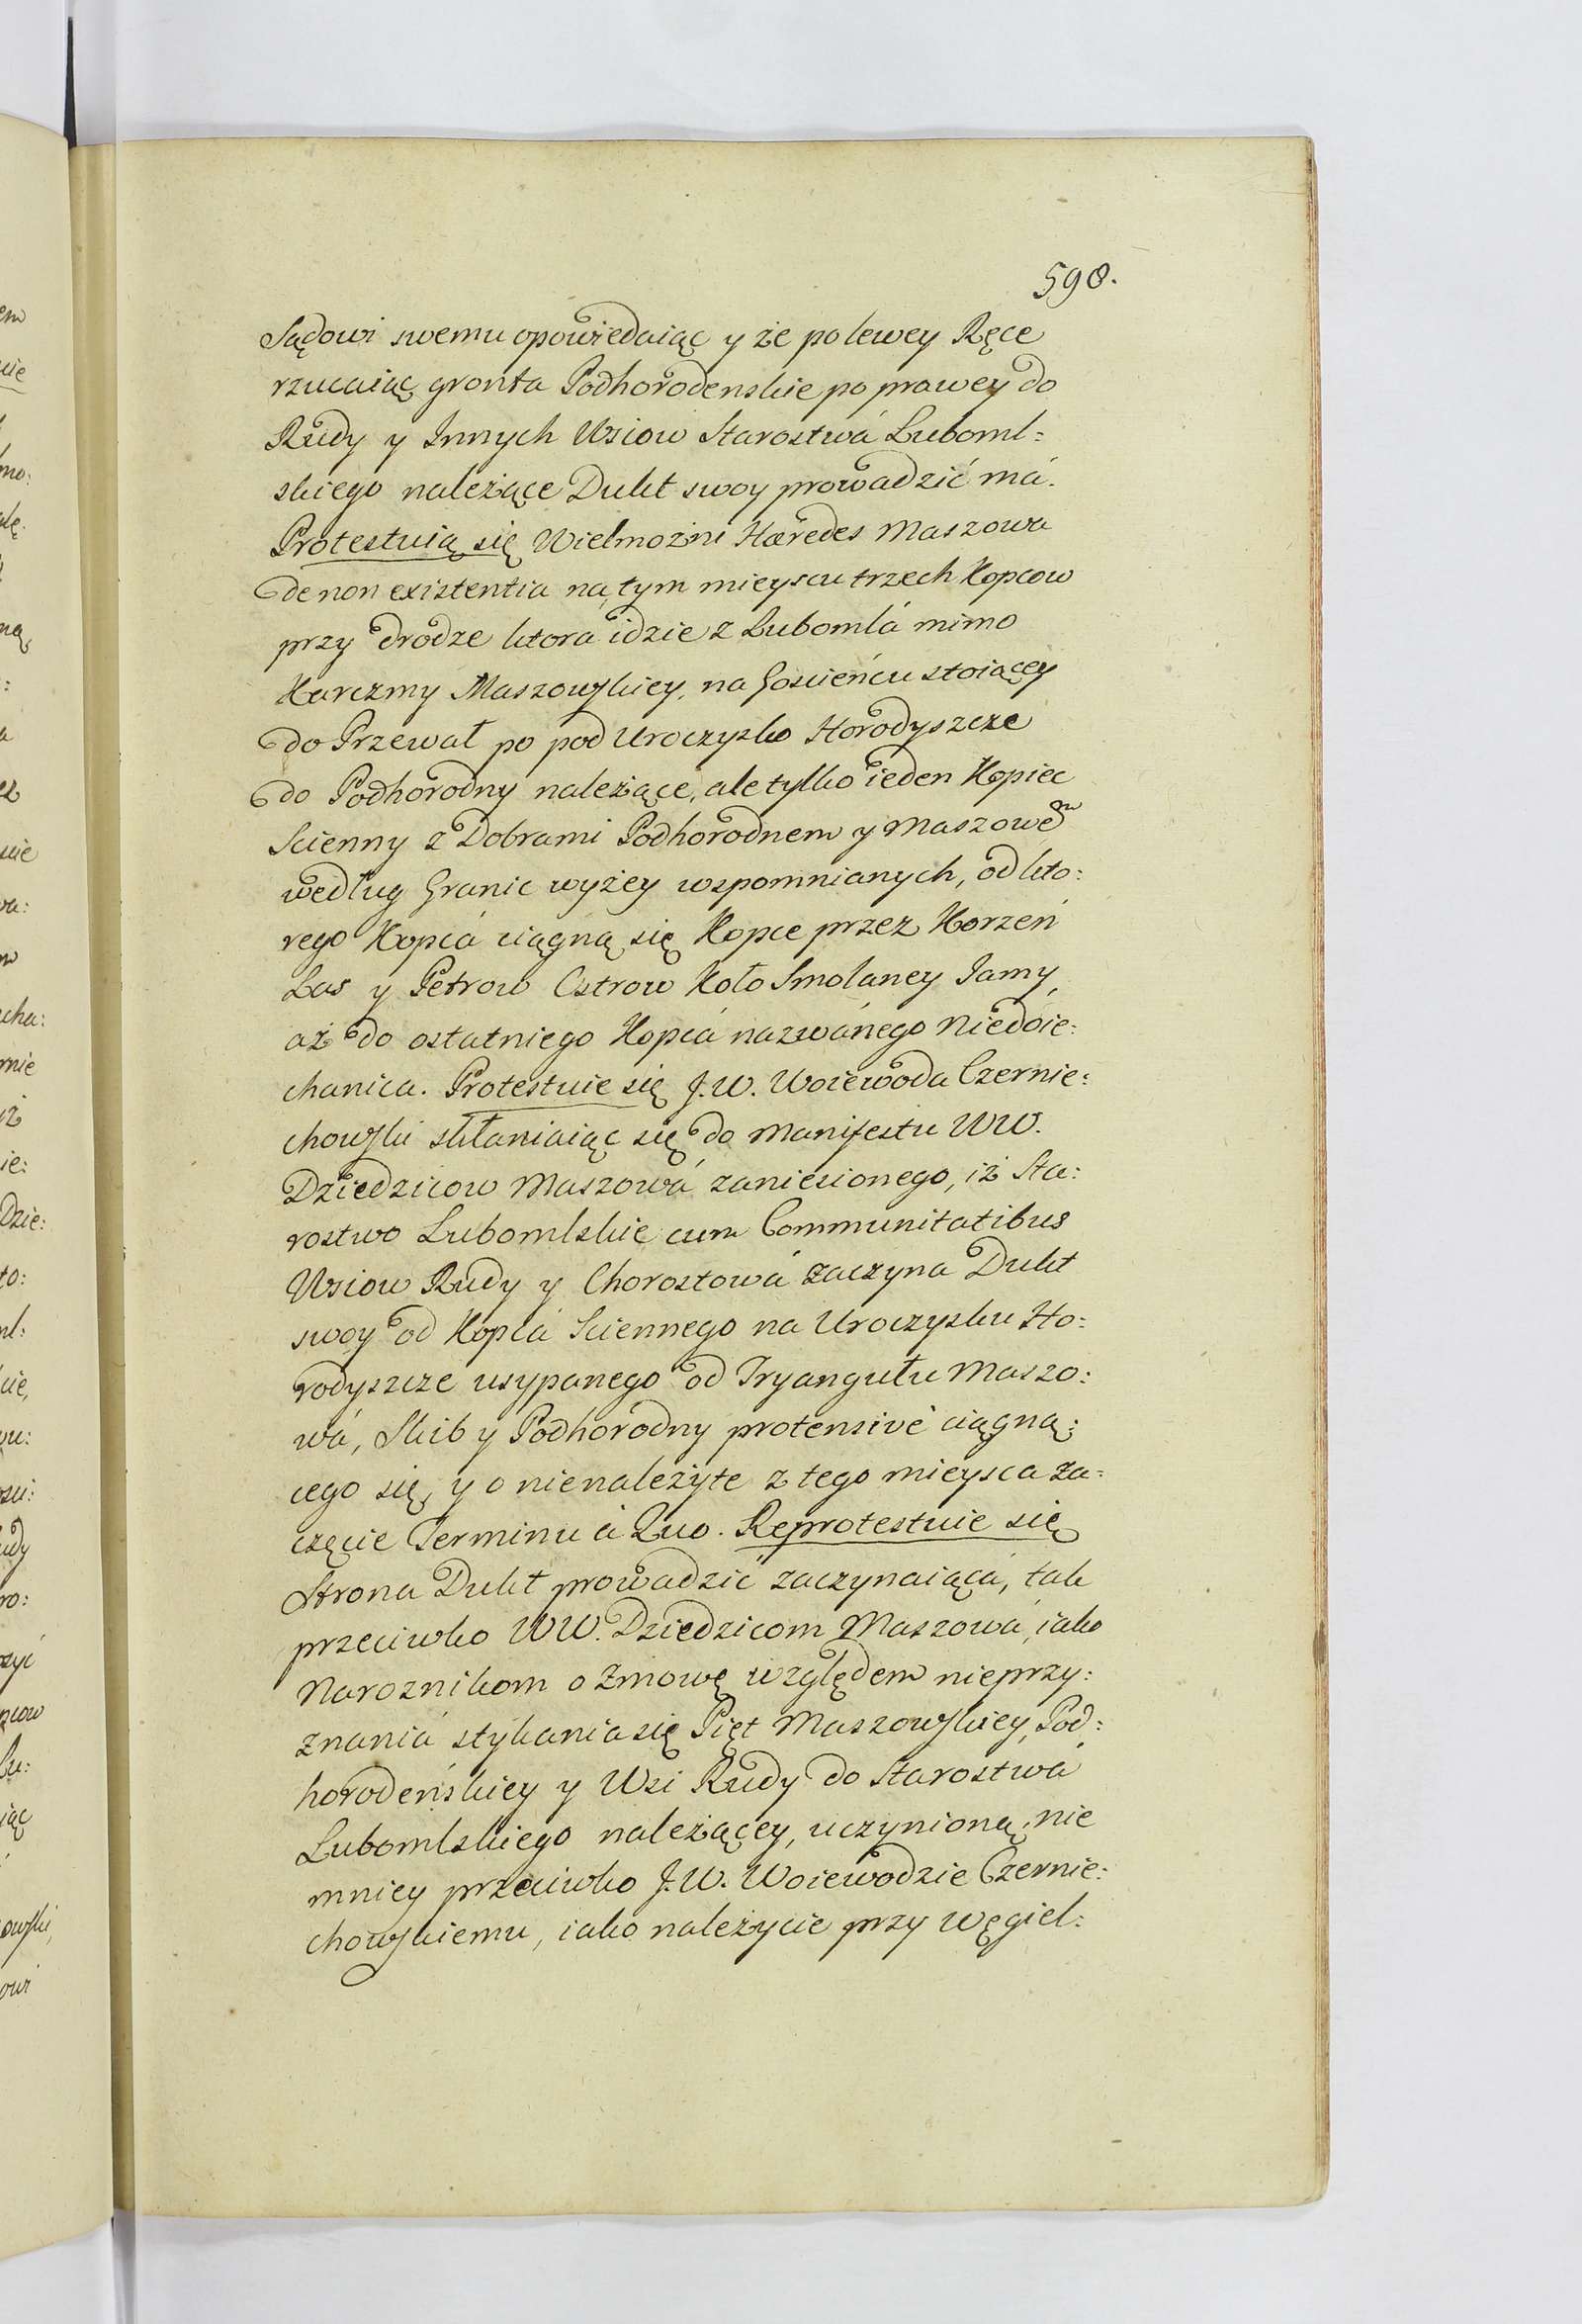 598.
Sądowi swemu opowiedaiąc y że po lewey Ręce
rzucaiąc gronta Podhorodenskie po prawey do
Rudy y Innych Wsiow Starostwá Luboml=
skiego należące Dukt swoy prowadzić má.
Protestuią się Wielmożni Hæredes Maszowa
de non existentia ná tym mieyscu trzech Kopcow
przy drodze ktora idzie z Lubomlá mimo
Karczmy Maszowskiey, na Goscieńcu stoiącey
do Przewał po pod Uroczysko Horodyszcze
do Podhorodny należące, ale tylko ieden Kopiec
Scienny z Dobrami Podhorodnem y Maszowem
według Granic wyżey wspomnianych, od kto:
rego Kopcá ciągną się Kopce przez Korzeń
Las y Petrow Ostrow Koło Smolaney Jamy,
aż do ostatniego Kopcá nazwánego Niedoie:
chanica. Protestuie się J.W. Woiewoda Czernie:
chowski skłaniaiąc się do Manifestu WW.
Dziedzicow Maszowá zaniesionego, iż Sta:
rostwo Lubomlskie cum Communitatibus
Wsiow Rudy y Chorostowá zaczyna Dukt
swoy od Kopcá Sciennego na Uroczysku Ho:
rodyszcze usypanego od Tryangułu Maszo:
wá, Skib y Podhorodny protensivè ciągną:
cego się, y o nienależyte z tego mieysca za:
częcie Terminu à Quo. Reprotestuie się
Strona Dukt prowadzić zaczynaiącá, tak
przeciwko WW. Dziedzicom Maszowá, iako
Naroznikom o Zmowę względem nieprzy:
znaniá stykania się Pięt Maszowskiey, Pod:
horodeńskiey y Wsi Rudy do Starostwá
Lubomlskiego należącey, uczynioną, nie
mniey przeciwko J.W. Woiewodzie Czernie:
chowskiemu, iako należycie przy węgiel: